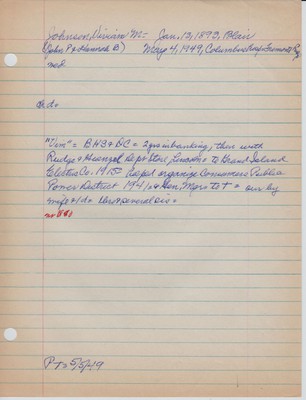 Johnson, Divina M = Jan. 12, 1893, Blair
(John, P & Hannah B) May 4, 1949, Columbus
med.
"Vim" = BHS & DC = 2 yrs in banking; then with
Rudge & Guenzel Dep't Store, Lincoln = to Grand Island
Electric Co. 1915 = helped organize Consumers Public
Power District 1941 & Gen. Mgr. to t = sur by
wife & 1 d = bro & several sis =
PT = 5/5/49